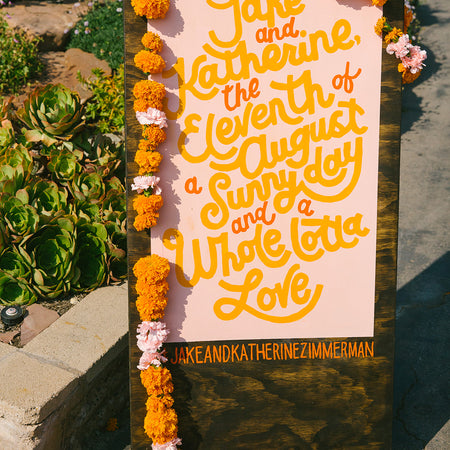 Jake
and
Katherine,
the
Eleventh of
August
a Sunny day
and a
Whole lotta
Love
JAKEANDKATHERINEZIMMERMAN